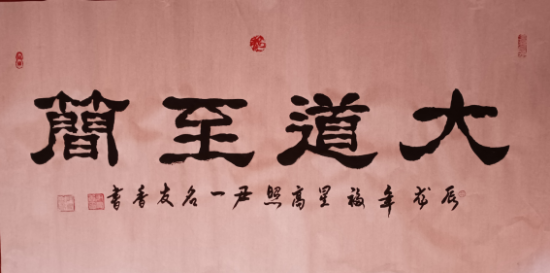 大道至簡
辰龙年福星高照尹一名友香書